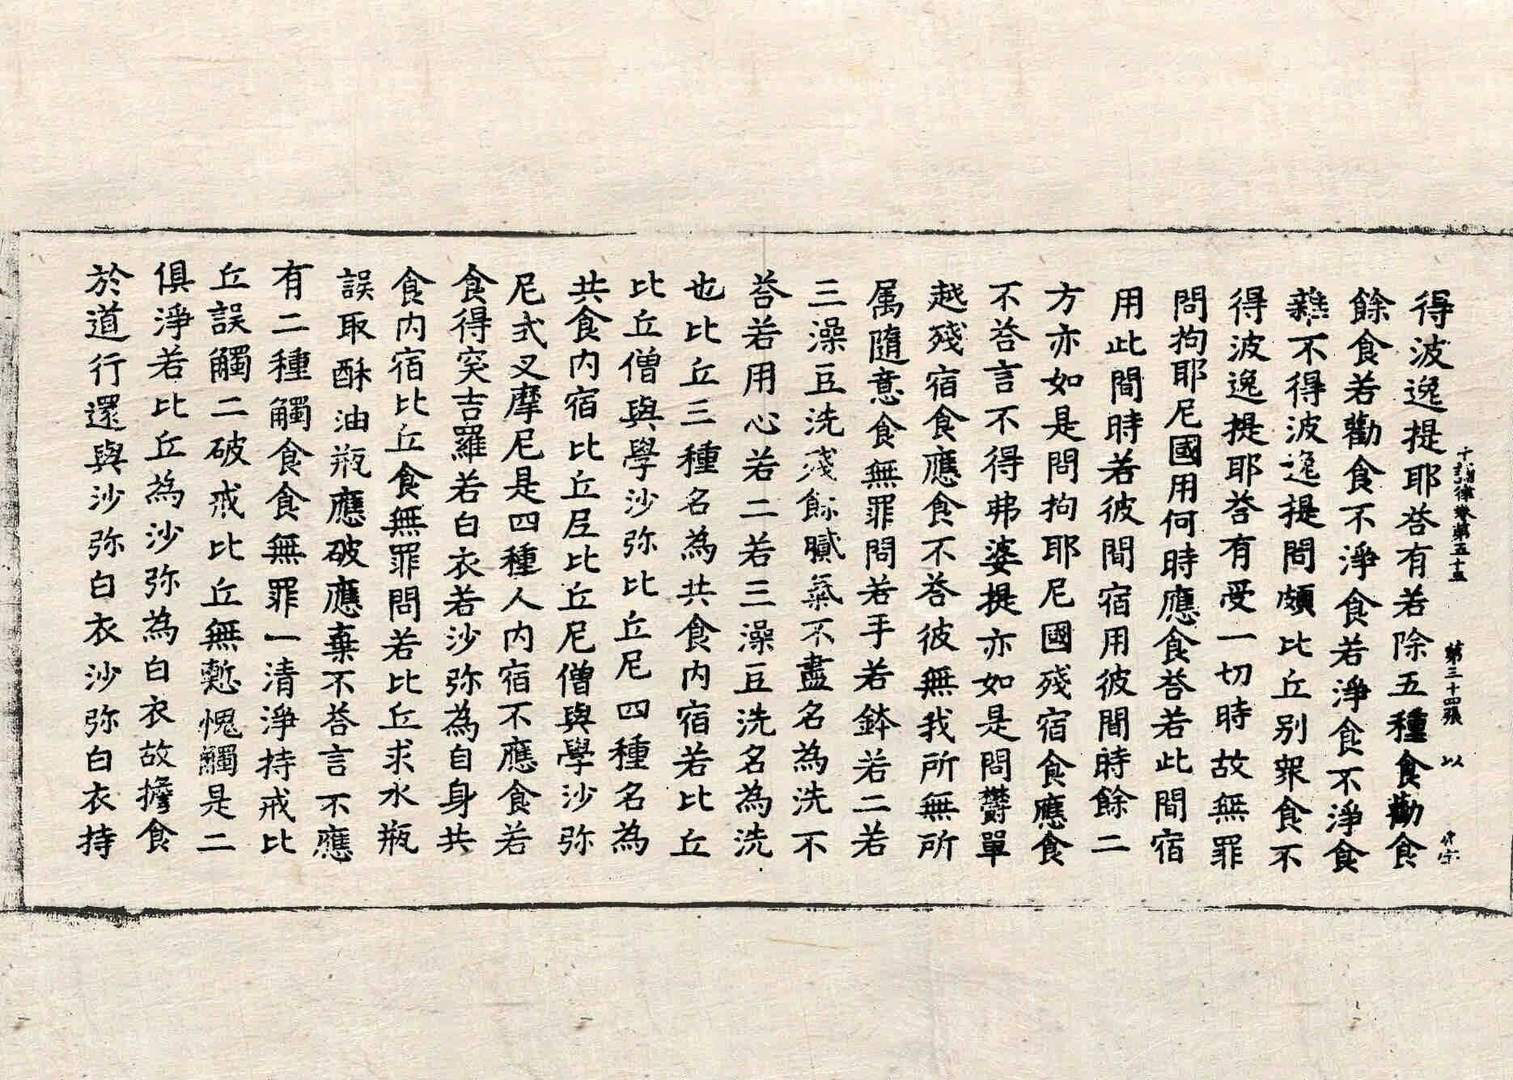 十誦律卷第五十五 第三十四張 以
得波逸提耶荅有若除五種食勸食
餘食若勸食不淨食若淨食不淨食
雜不得波逸提問頗比丘别衆食不
得波逸提耶荅有受一切時故無罪
問拘耶尼國用何時應食荅若此間宿
用此間時若彼間宿用彼間時餘二
方亦如是問拘耶尼國殘宿食應食
不荅言不得弗婆提亦如是問欝單
越殘宿食應食不荅彼無我所無所
属隨意食無罪問若手若鉢若二若
三澡豆洗殘餘膩氣不盡名為洗不
荅若用心若二若三澡豆洗名為洗
也比丘三種名為共食内宿若比丘
比丘僧與學沙弥比丘尼四種名為
共食内宿比丘尼比丘尼僧與學沙弥
尼式叉摩尼是四種人内宿不應食若
食得突吉羅若白衣若沙弥為自身共
食内宿比丘食無罪問若比丘求水瓶
誤取酥油瓶應破應棄不荅言不應
有二種觸食食無罪一清淨持戒比
丘誤觸二破戒比丘無慙愧觸是二
俱淨若比丘為沙弥為白衣故擔食
於道行還與沙弥白衣沙弥白衣持